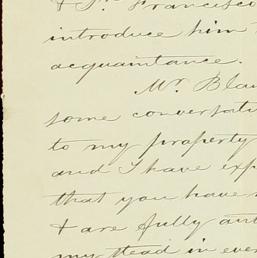 & Sn. Francisco
introduce him
acquaintance.
Mr. Blan
some conversati
to my property
and I have exp
that you have
& are fully aut
my stead in ever